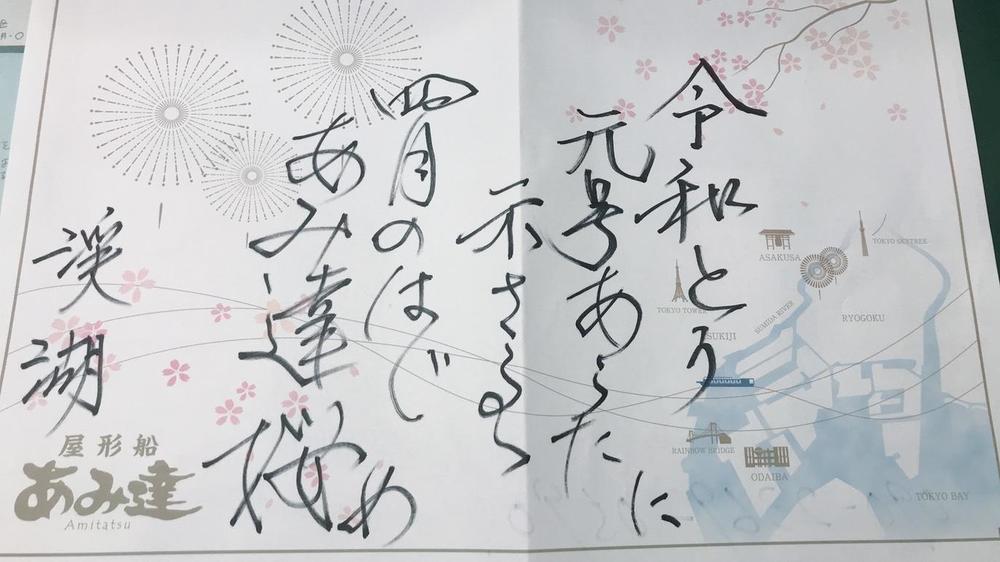 令和とう
元号あらたに
示さるる
四月のはじめ
あみ達桜
渓湖
ASAKUSA
TOKYO SKYTREE
TOKYO TOWER
SUKIJI
SUMIDA RIVER
RYOGOKU
RAINBOW BRIDGE
ODAIBA
TOKYO BAY
屋形船
あみ達
Amitatsu